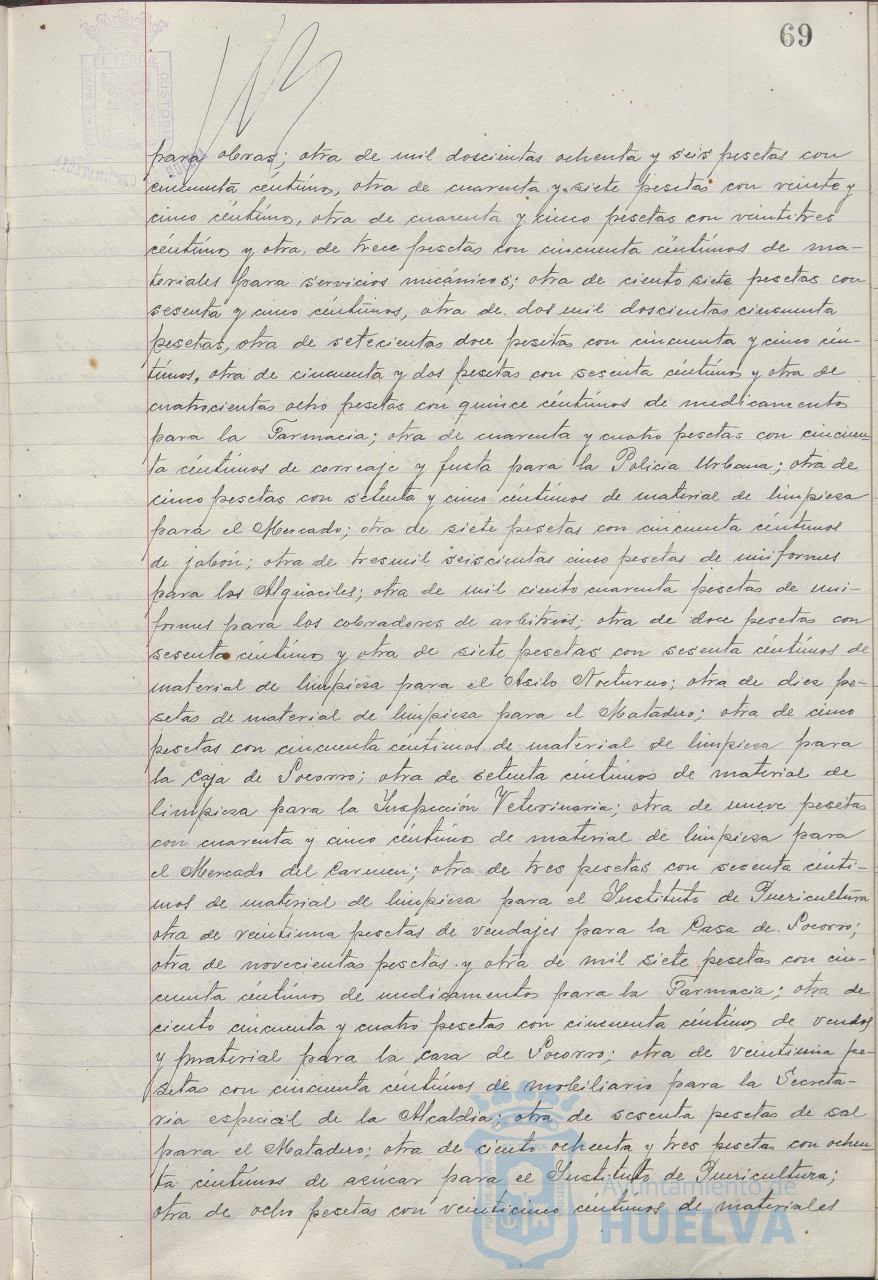 69
para obras; otra de mil doscientas ochenta y seis pesetas con
cincuenta céntimos, otra de cuarenta y siete pesetas con veinte y
cinco céntimos, otra de cuarenta y cinco pesetas con veintitres
céntimos y otra de trece pesetas con cincuenta céntimos de ma-
teriales para servicios mecánicos; otra de ciento siete pesetas con
sesenta y cinco céntimos, otra de dos mil doscientas cincuenta
pesetas, otra de setecientas doce pesetas con cincuenta y cinco cén-
timos, otra de cincuenta y dos pesetas con sesenta céntimos y otra de
cuatrocientas ocho pesetas con quince céntimos de medicamentos
para la Farmacia; otra de cuarenta y cuatro pesetas con cincuen-
ta céntimos de correaje y fusta para la Policia Urbana; otra de
cinco pesetas con setenta y cinco céntimos de material de limpieza
para el Mercado; otra de siete pesetas con cincuenta céntimos
de jabón; otra de tresmil seiscientas cinco pesetas de uniformes
para los Alguaciles; otra de mil ciento cuarenta pesetas de uni-
formes para los cobradores de arbitrios; otra de doce pesetas con
sesenta céntimos y otra de siete pesetas con sesenta céntimos de
material de limpieza para el Asilo Nocturno; otra de diez pe-
setas de material de limpieza para el Matadero; otra de cinco
pesetas con cincuenta céntimos de material de limpieza para
la Caja de Socorro; otra de setenta céntimos de material de
limpieza para la Inspección Veterinaria; otra de nueve pesetas
con cuarenta y cinco céntimos de material de limpieza para
el Mercado del Carmen; otra de tres pesetas con sesenta cénti-
mos de material de limpieza para el Instituto de Puericultura
otra de veintiuna pesetas de vendajes para la Casa de Socorro;
otra de novecientas pesetas y otra de mil siete pesetas con cin-
cuenta céntimos de medicamentos para la Farmacia; otra de
ciento cincuenta y cuatro pesetas con cincuenta céntimos de vendas
y material para la casa de Socorro; otra de veintiuna pe-
setas con cincuenta céntimos de mobiliario para la Secreta-
ria especial de la Alcaldia; otra de sesenta pesetas de sal
para el Matadero; otra de ciento ochenta y tres pesetas con ochen-
ta céntimos de azúcar para el Instituto de Puericultura;
otra de ocho pesetas con veinticinco céntimos de materiales
Ayuntamiento de
HUELVA